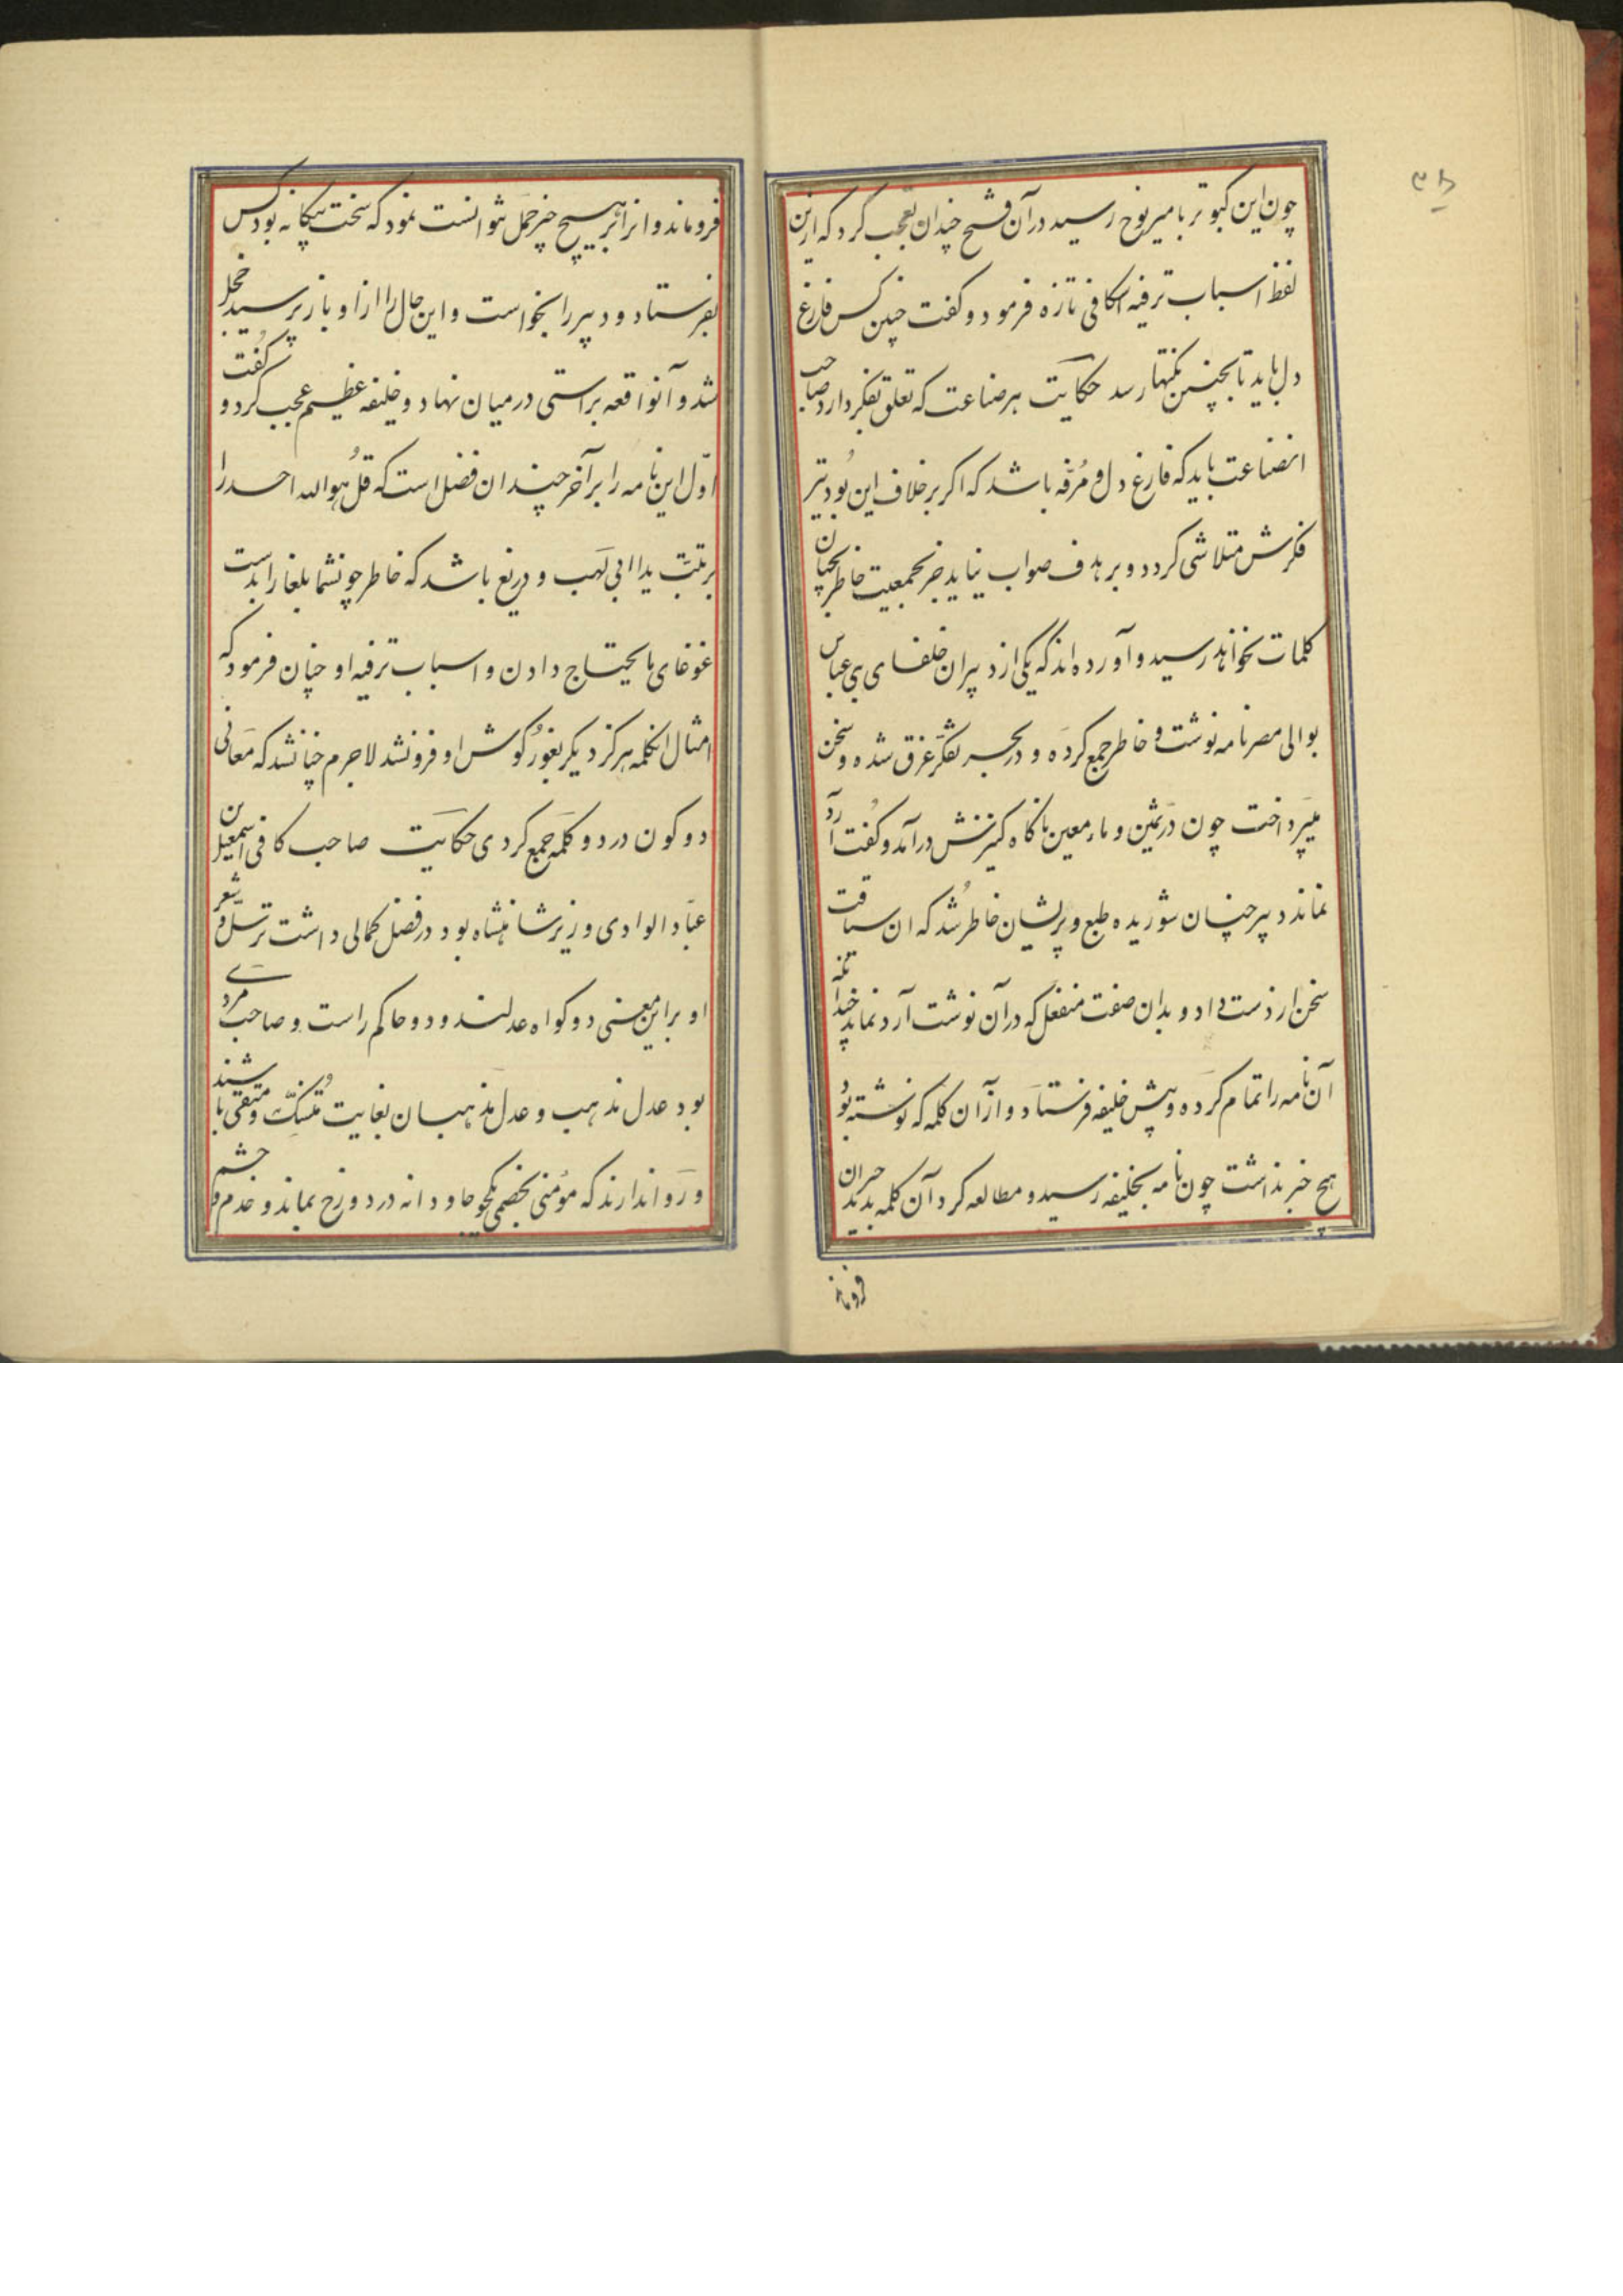 ۳۸
چون این کبوتر بامیر نوح رسید در آن فتح چندان تعجب کرد که ازین
لفظ اسباب ترفیه اسکافی تازه فرمود و گفت چنین کس فارغ
دل باید تا بچنین نکتها رسد حکایت هر صناعت که تعلق بتفکر دارد صاحب
انصناعت باید که فارغ دل و مُرفّه باشد که اگر بر خلاف این بُود تیر
فکرش متلاشی گردد و بر هدف صواب نیاید جز بجمعیت خاطر بچنان
کلمات نخواهد رسید و آورده‌اند که یکی از دبیران خلفای بنی عباس
بوالی مصر نامه نوشت و خاطر جمع کرده و در بحر تفکر غرق شده و سخن
میپرداخت چون درّ ثمین و ماء معین ناگاه کنیزکش درآمد و گفت آرد
نماند دبیر چنان شوریده طبع و پریشان خاطر شد که ان سیاقت
سخن از دست داد و بدان صفت منفعل که در آن نوشت آرد نماند چنانکه
آن نامه را تمام کرده و پیش خلیفه فرستاد و از آن کلمه که نوشته بود
هیچ خبر نداشت چون نامه بخلیفه رسید و مطالعه کرد آن کلمه بدید حیران
فروماند
فروماند و انرا بر هیچ چیز حمل نتوانست نمود که سخت بیگانه بود کس
بفرستاد و دبیر را بخواست و این حال را از او باز پرسید خجل
شد و آنواقعه براستی در میان نهاد و خلیفه عظیم عجب کرد و گفت
اوّل این نامه را بر آخر چندان فضل است که قُل هو الله احد را
بر تبّت یدا ابی لَهَب و دریغ باشد که خاطر چونشما بلغا را بدست
غوغای مایحتاج دادن و اسباب ترفیه او چنان فرمود که
امثال انکلمه هرگز دیگر بغور گوش او فرو نشد لاجرم چنانشد که مَعانی
دو کون در دو کلمه جمع کردی حکایت صاحب کافی اسمعیل بن
عبّاد الوادی وزیر شاهنشاه بود و در فضل کمالی داشت ترسّل و شعر
او بر این معنی دو گواه عدلند و دو حاکم راست و صاحب مردی
بود عدل مذهب و عدل مذهبان بغایت مُتنسّک و متقی باشند
و روا ندارند که مؤمنی بخصمی یکجو جاودانه در دوزخ بماند و خدم و حشم